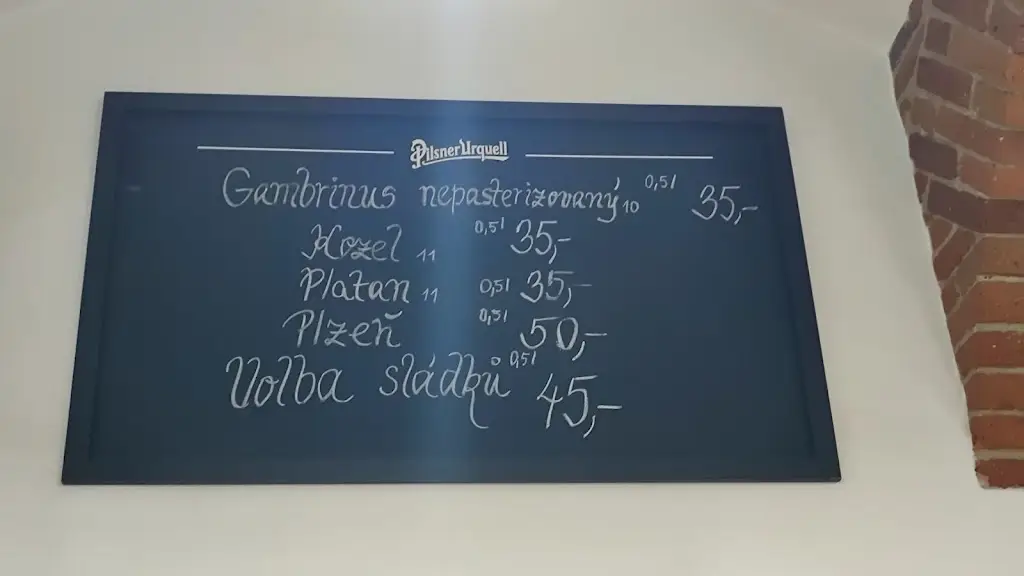 Pilsner Urquell
Gambrinus nepasterizovaný 10 0,5l 35,-
Kozel 11 0,5l 35,-
Platan 11 0,5l 35,-
Plzeň 0,5l 50,-
Volba sládků 0,5l 45,-